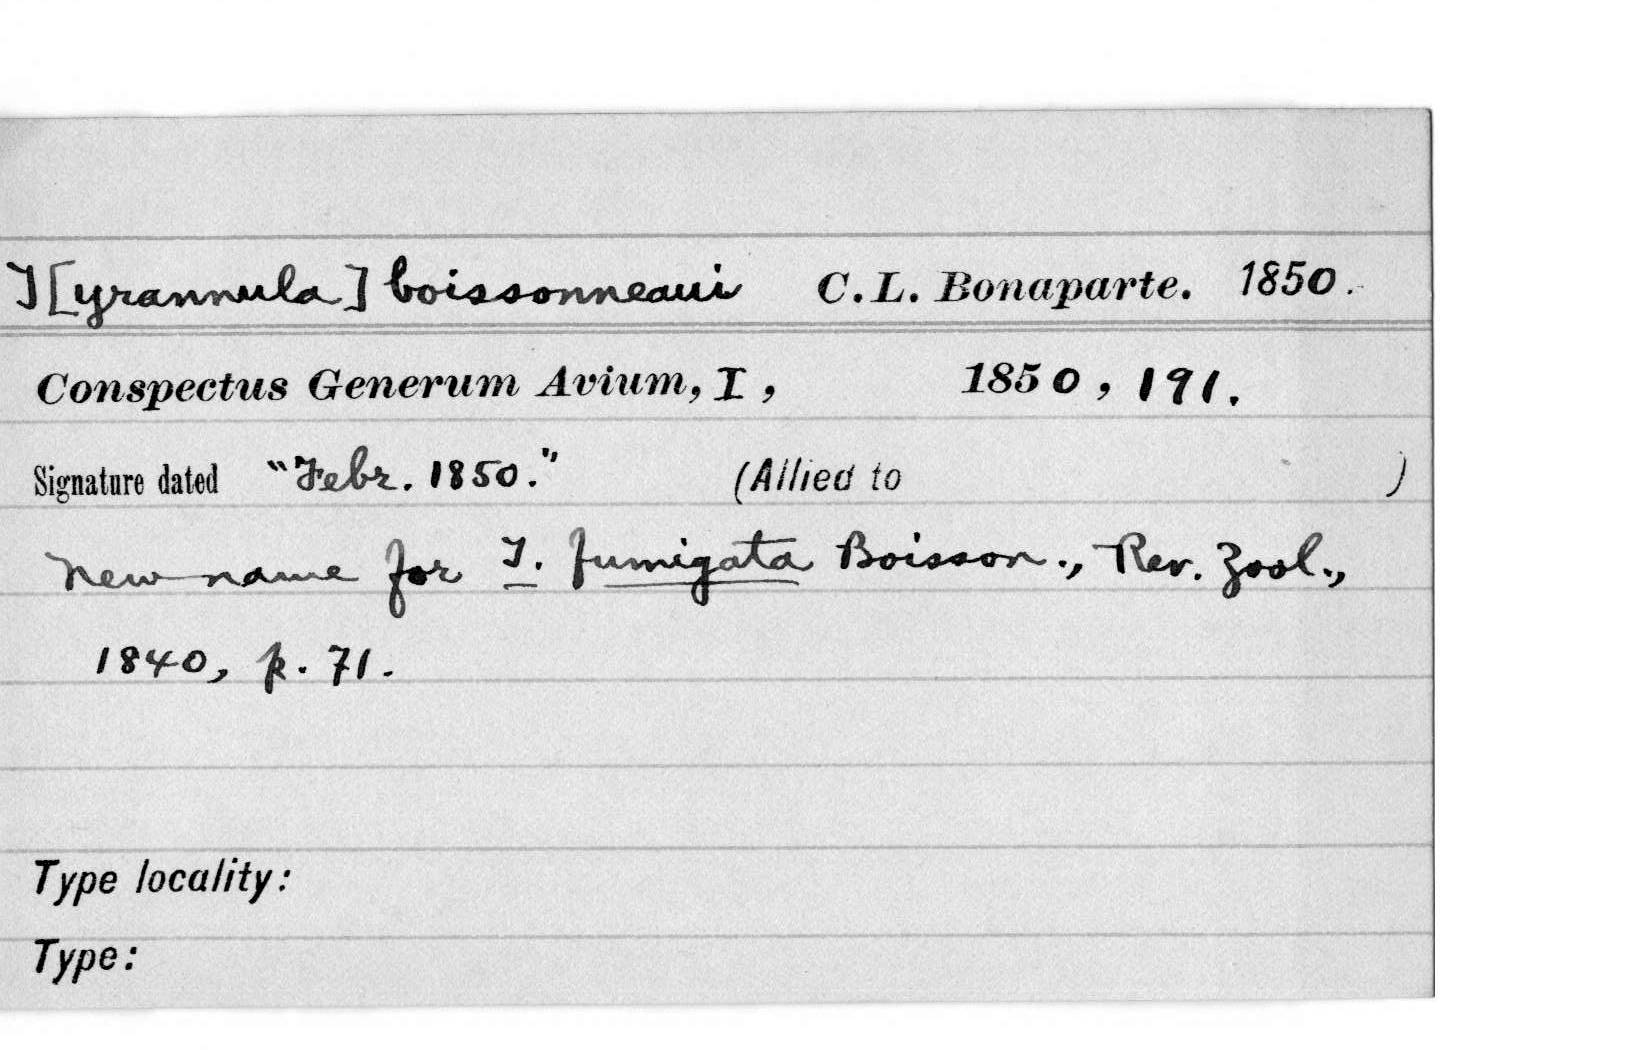 T[yrannula] boissonneaui C. L. Bonaparte. 1850.
Conspectus Generum Avium, I, 1850, 191.
Signature dated "Febr. 1850." (Allied to )
New name for T. fumigata Boisson., Rev. Zool.,
1840, p. 71.
Type locality:
Type: